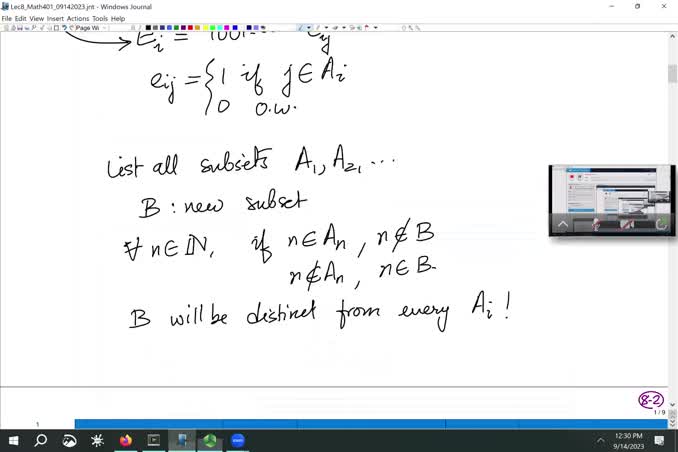 Lec8_Math401_09142023.jnt - Windows Journal
File Edit View Insert Actions Tools Help
Page Wi
E_i = 1001... e_ij
e_ij = { 1 if j ∈ A_i
0 o.w.
List all subsets A_1, A_2, ...
B : new subset
∀ n ∈ ℕ, if n ∈ A_n, n ∉ B
n ∉ A_n, n ∈ B.
B will be distinct from every A_i !
8-2
1 / 9
1
12:30 PM
9/14/2023